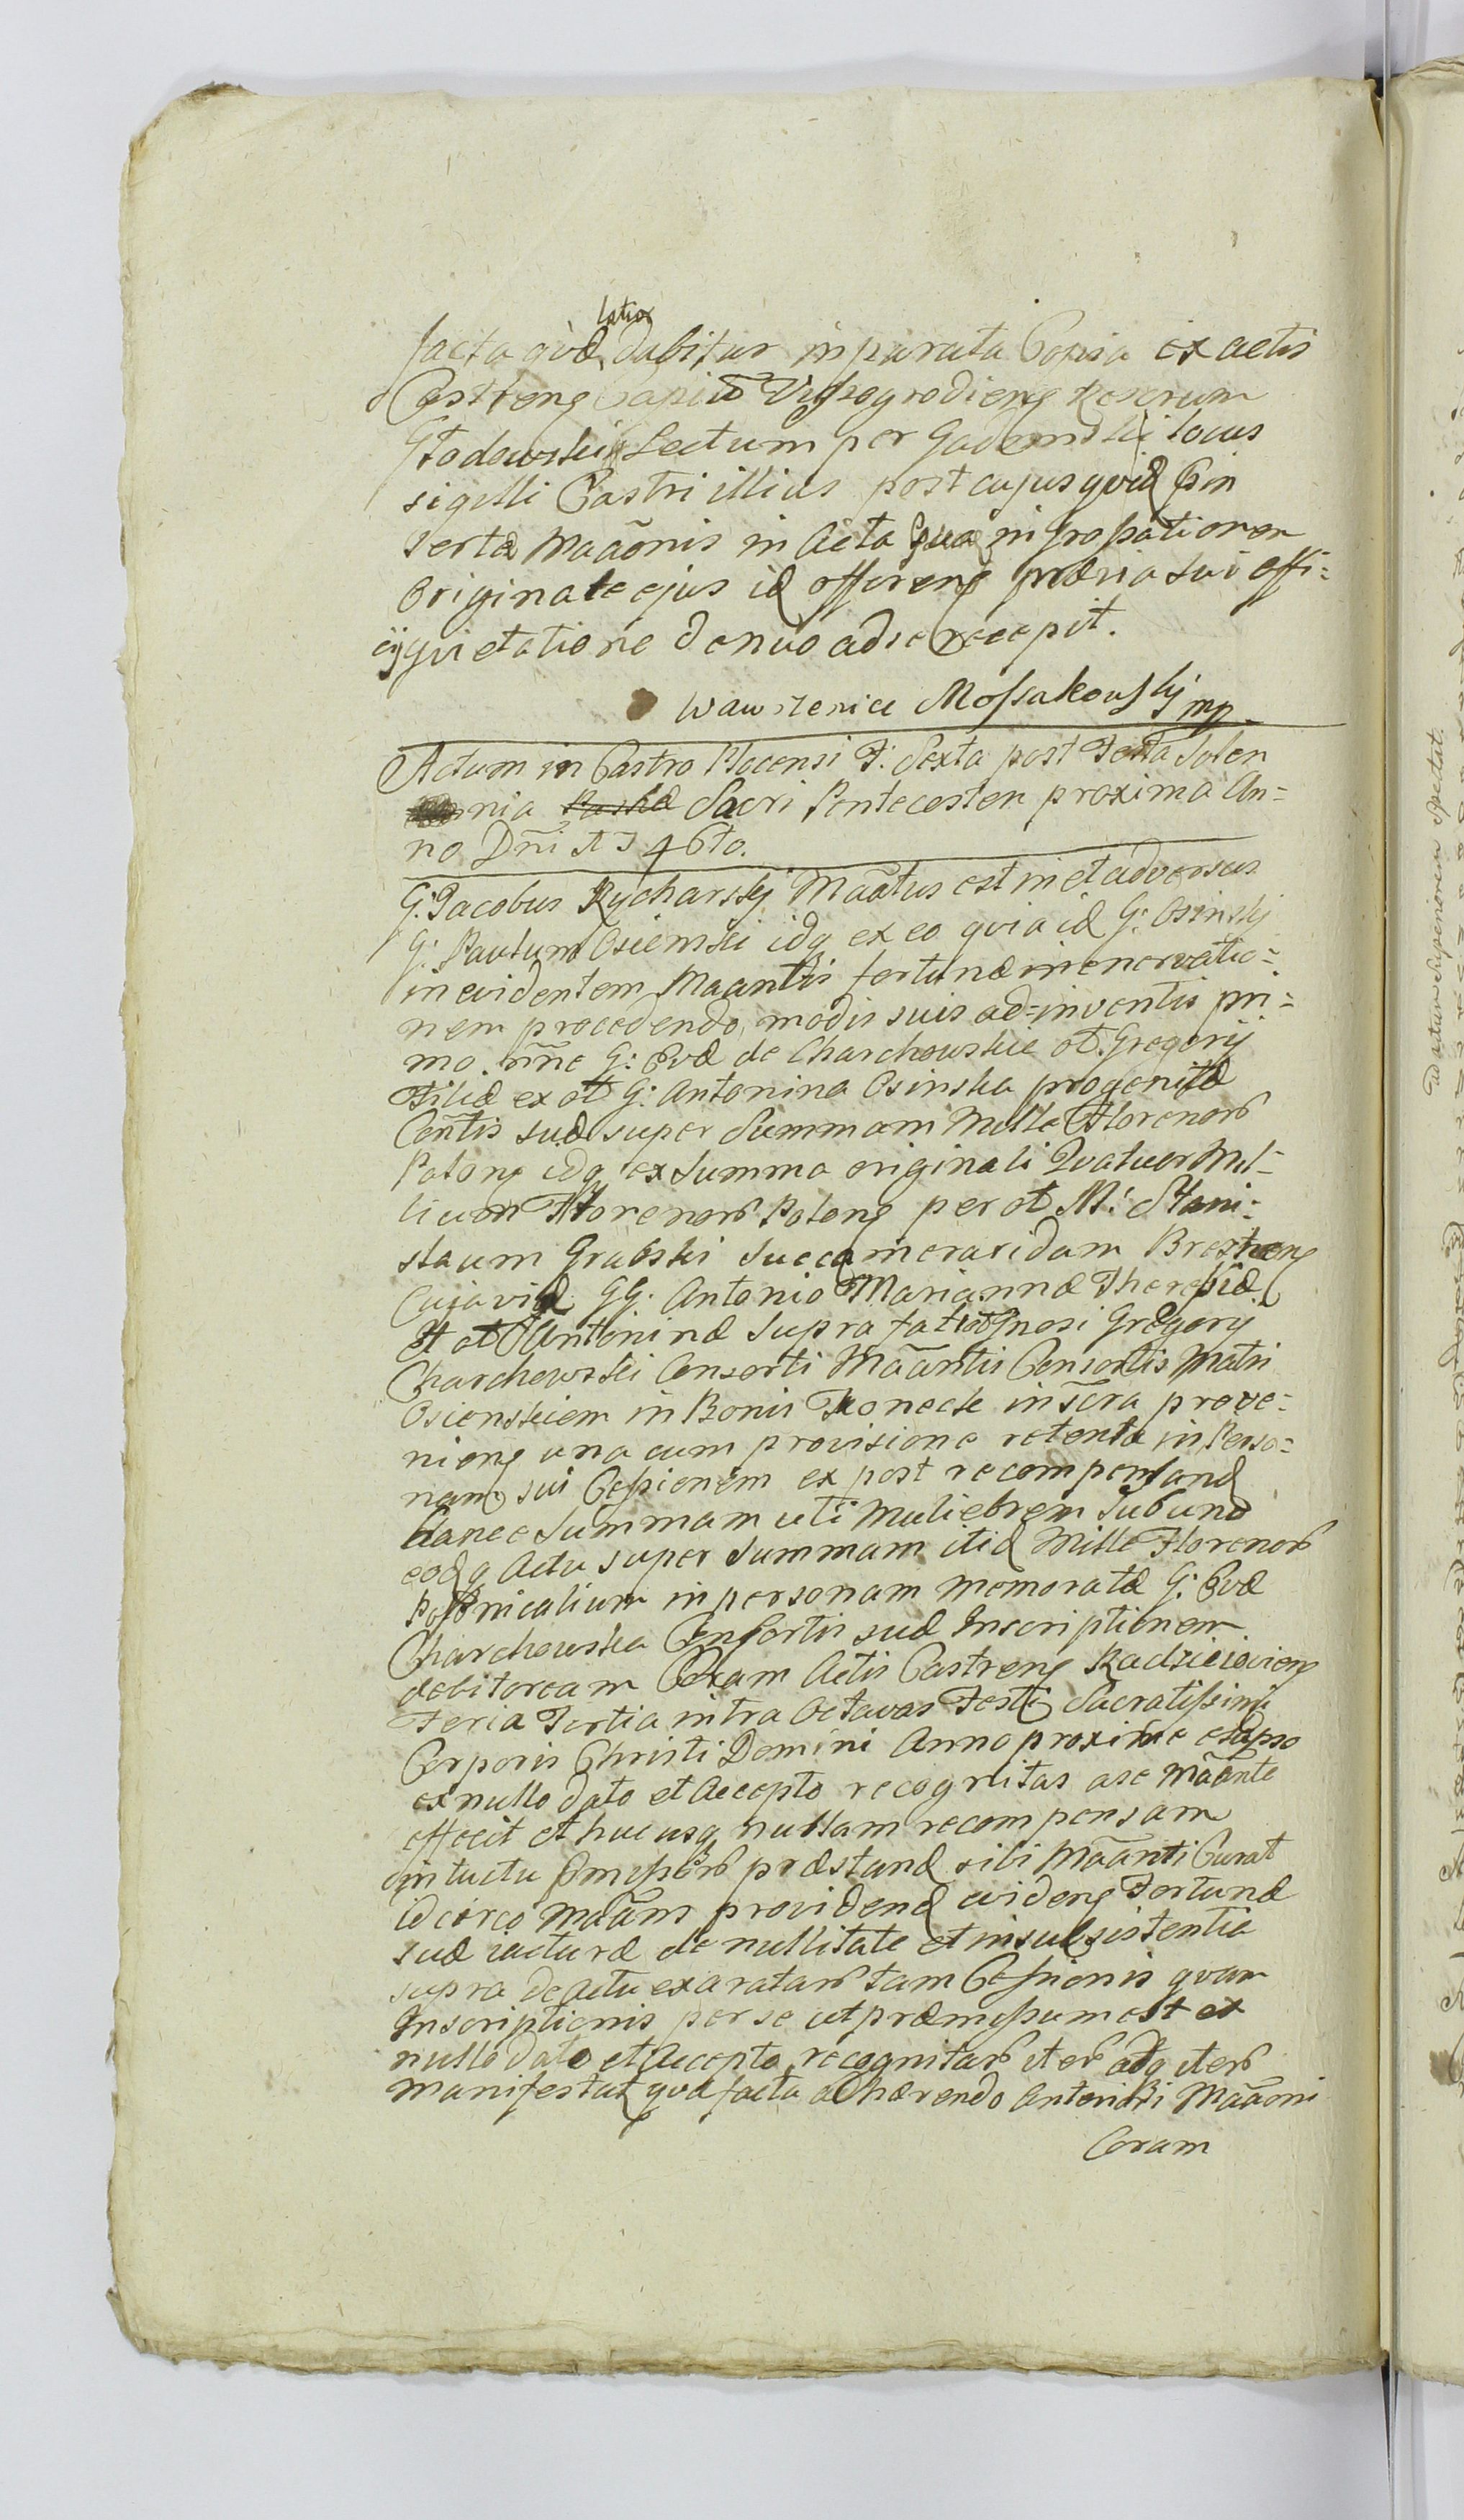 latior
facta qvæ dabitur in parata Copia ex actis
Castreng Capitũ Vissogrodieng Rexerum
Głodowski Lectum per Gadomski locus
sigilli Castri illius post cujus qvid
sertæ Maãonis in Acta
Originale ejus id offereng prævia sui offi=
cij qvietatione denuo ad se recepit.
Wawrzeniec Mossakowskij mp
Actum in Castro Plocensi F: Sexta post Festa Solen
nia Sacri Pentecosten proxima An=
no Dñi 1746to.
G: Jacobus Rycharskij Maãtus est in et adversus
G: Osiemski idq ex eo qvia id G: Osinskij
in evidentem Maantis fortunæ in enervatio=
nem procedendo modis suis ad=inventis pri=
mo nñe G: Evæ de Charchowskie ol Gregorij
Filiæ ex ol G: Antonina Osinska progenitæ
Contis suæ super Summam Mille Florenorũ
Polong idq ex Summa originali Qvatuor Mil=
lium Florenorũ Polong per ol M: Stani=
slaum Grabski Succameraridam Brestreng
Cujaviæ GG: Antonio Mariannæ Theressiæ
Et ol Antoninæ Supra fati ol Gnosi Gregorij
Charchowski Consorti Maãntis Consortis Matri
Osienskiem in Bonis Koneck inscra prove=
nieng una cum provisione retenta in Perso=
nam sui Cessionem ex post recompensand
Hance Summam uti Muliebrem Sub uno
eodq Actu super Summam itid Mille Florenorũ
Polonicalium in personam memoratæ G: Evæ
Charchowska Consortis suæ Inscriptionem
debitoream Coram Actis Castreng Radzieiovieng
Feria Tertia intra Octavas Festi Sacratissimi
Corporis Christi Domini Anno proxime elapso
ex nullo dato et Accepto recognitas a se Maãnte
effecit et huc usq nullam recompensam
intuitu præmissorũ præstand sibi Maãnti Curat
id circo Maãns providend evideng Fortunæ
suæ iacturæ de nullitate et insubsistentia
supra de actu exaratarũ tam Cessionis qvam
Inscriptionis per se ut præmissum est ex
nullo dato et Accepto recognitarũ iterũ atq iterũ
Manifestat qva facta adhærendo Anteriori Maãoni
Coram